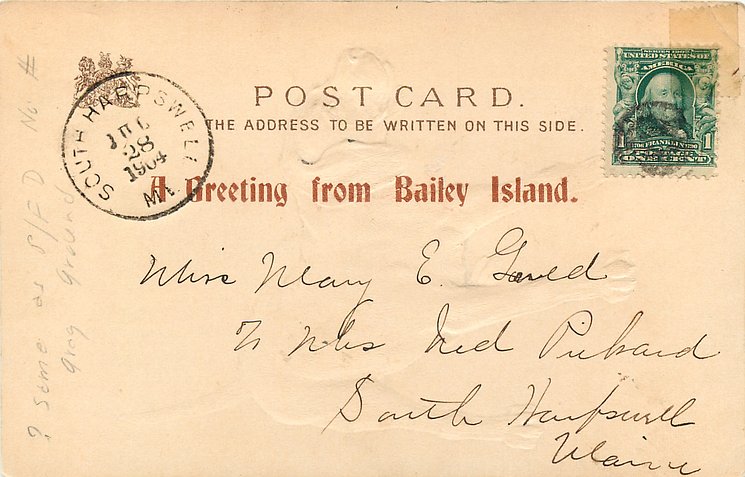 POST CARD.
THE ADDRESS TO BE WRITTEN ON THIS SIDE.
SOUTH HARPSWELL
28
1904
ME.
SERIES 1902
UNITED STATES OF
AMERICA
1 1706 FRANKLIN 1790 1
POSTAGE
ONE CENT
A Greeting from Bailey Island.
Miss Mary E. Gould
Mrs Ned Pinkard
South Harpswell
Maine
? Same as S/F D No #
Gray Ground